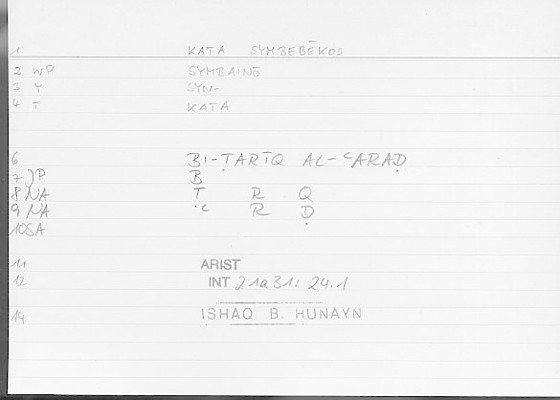 1 KATA SYMBEBĒKOS
2 WP SYMBAINŌ
3 Y SYN-
4 T KATA
6 BI-ṬARĪQ AL-ᶜARAḌ
7 JP B
8 NA Ṭ R Q
9 NA ᶜ R Ḍ
10 SA
11 ARIST
12 INT 21a31: 24.1
14 ISHAQ B. HUNAYN